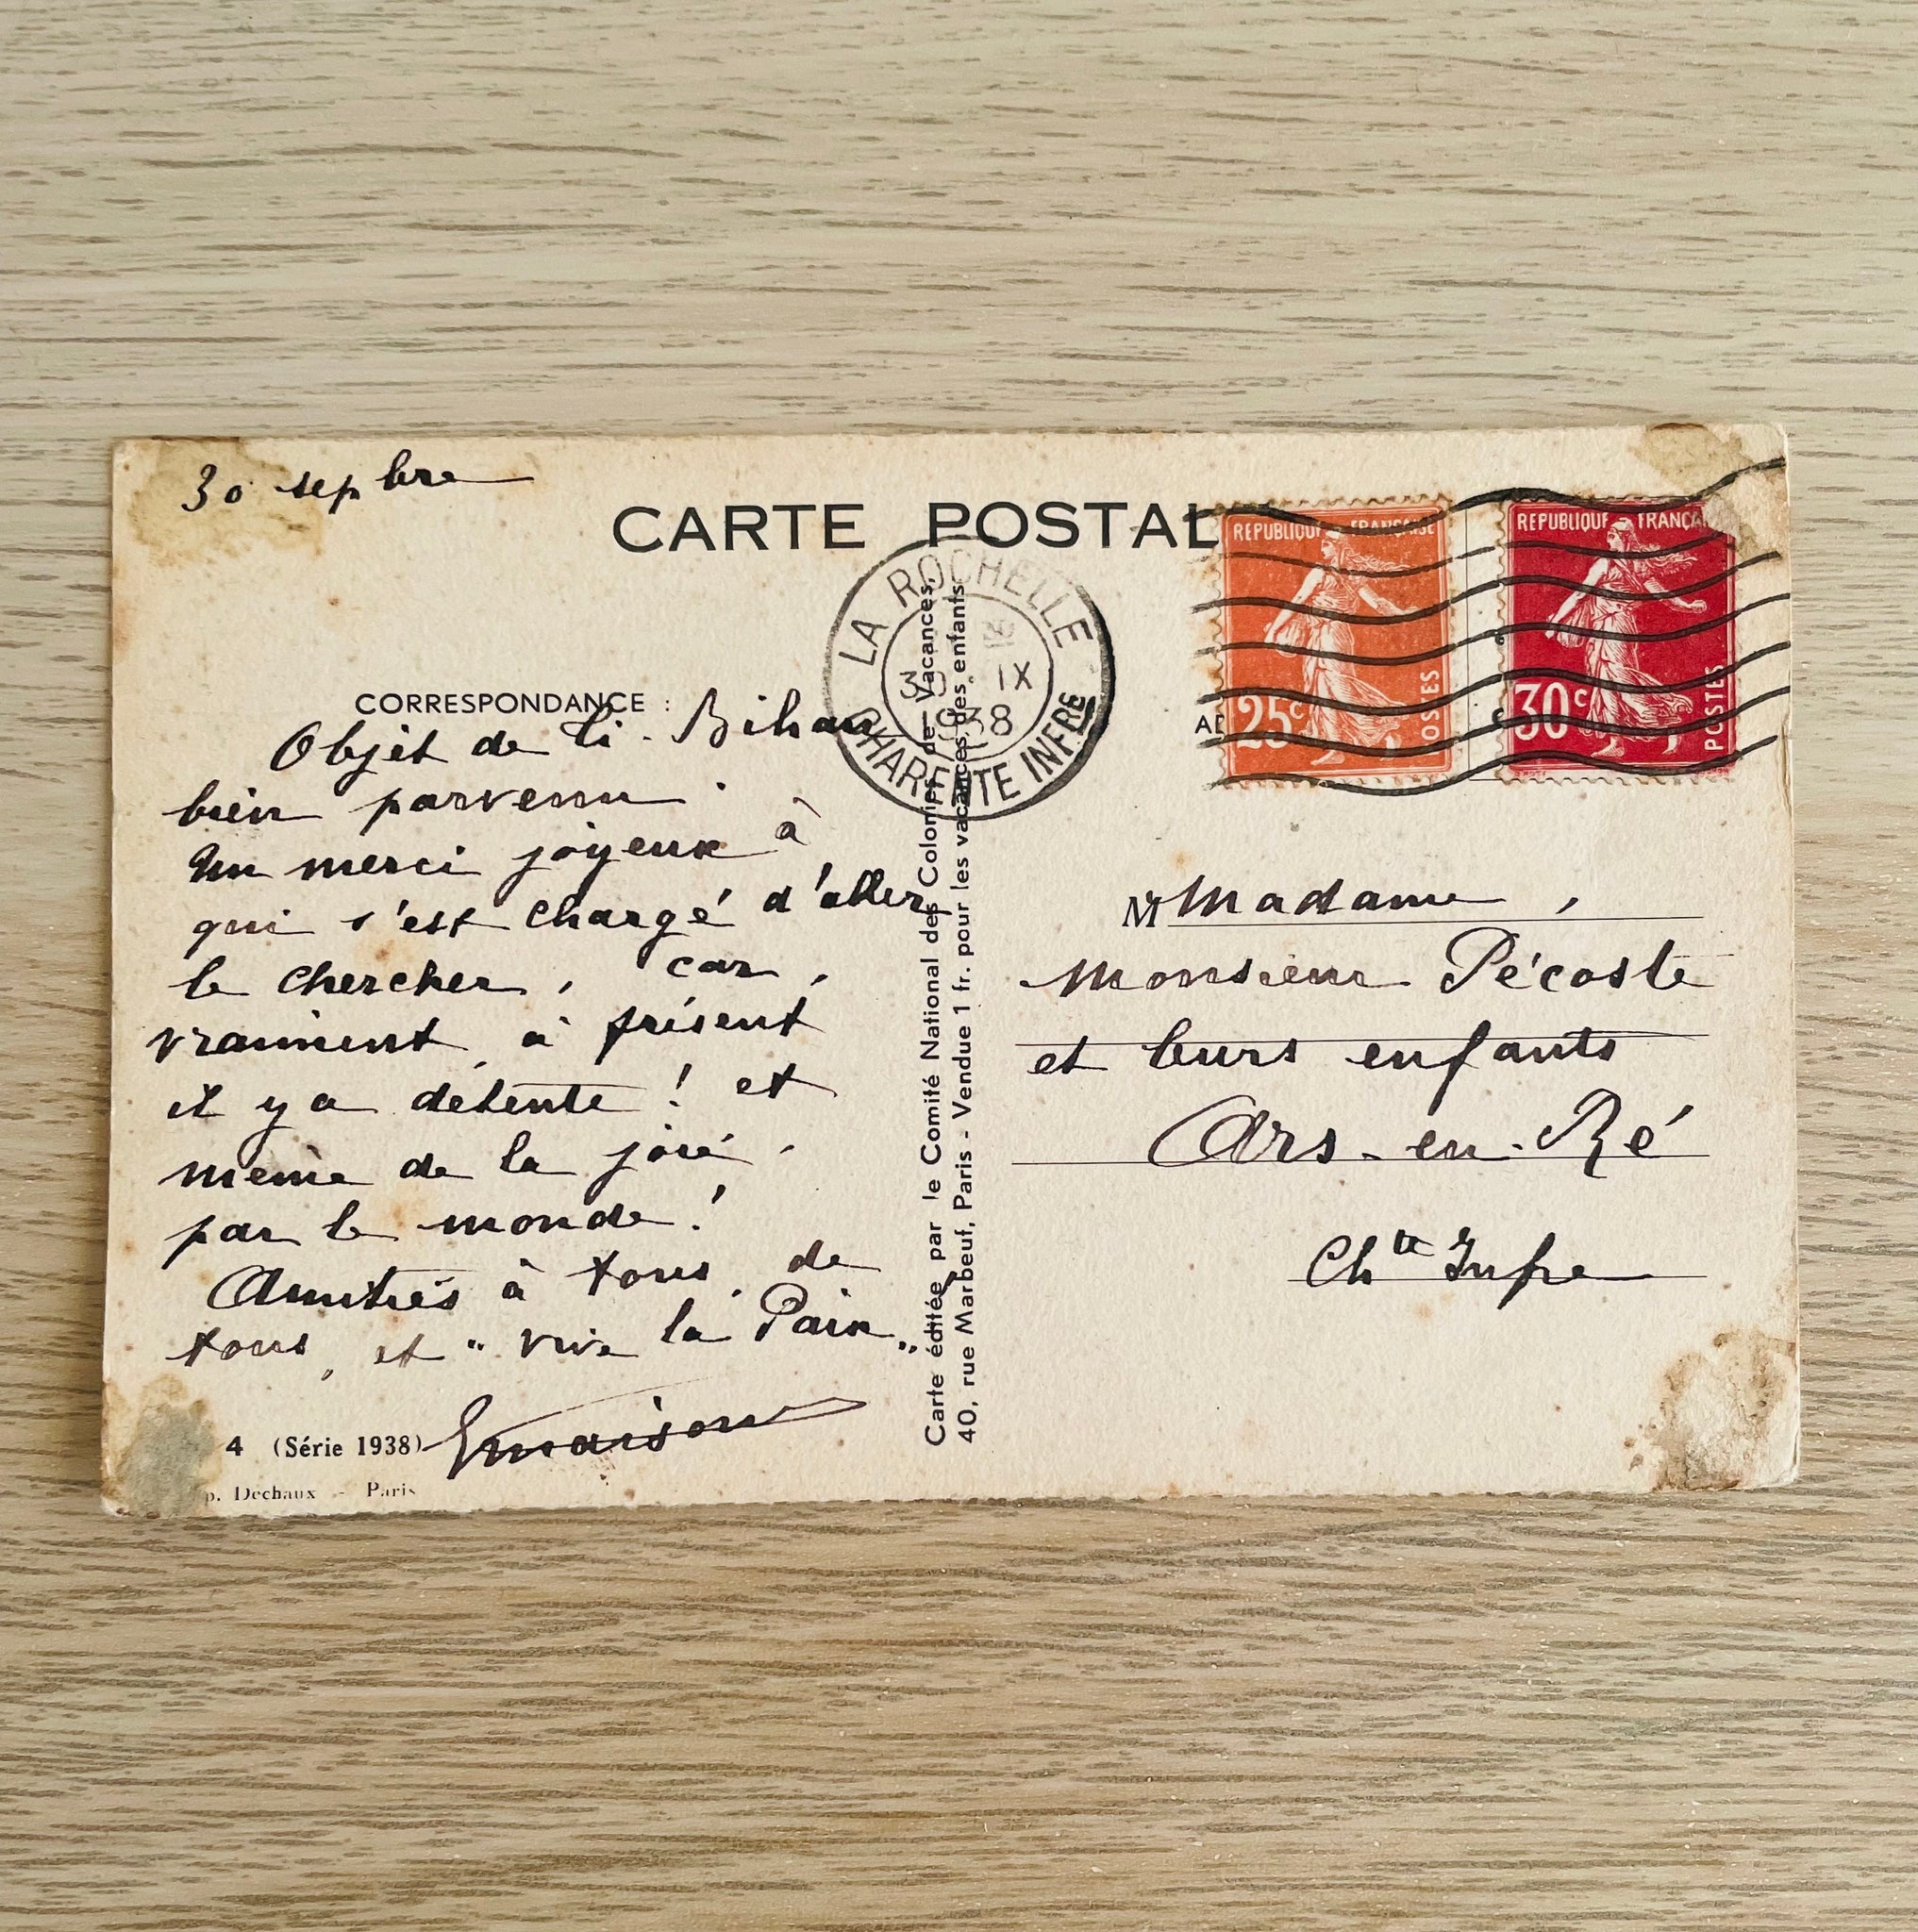 30 sepbre
CARTE POSTAL
LA ROCHELLE
30 IX
1938
CHARENTE INFRE
REPUBLIQUE FRANÇAISE
25c
POSTES
REPUBLIQUE FRANÇA
30c
POSTES
CORRESPONDANCE :
Objet de Ti-Bihan
bien parvenu.
Un merci joyeux à
qui s'est chargé d'aller
le chercher, car,
vraiment, à présent
il y a détente ! et
même de la joie.
par le monde !
Amitiés à tous, de
tous, et "vive la Paix"
4 (Série 1938)
p. Dechaux - Paris
Carte éditée par le Comité National des Colonies de Vacances,
40, rue Marbeuf, Paris - Vendue 1 fr. pour les vacances des enfants.
AD
M Madame,
Monsieur Pécoste
et leurs enfants
Ars-en-Ré
Chte Infre